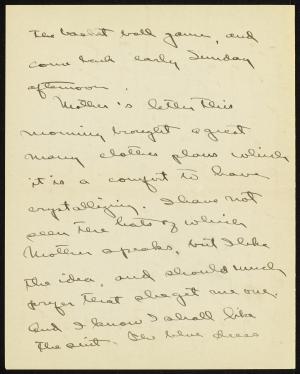 the basket ball game, and
come back early Sunday
afternoon.
Mother's letter this
morning brought a great
many clothes plans which
it is a comfort to have
crystallizing. I have not
seen the hats of which
Mother speaks, but I like
the idea, and should much
prefer that she get me one.
And I know I shall like
the suit. The blue dress